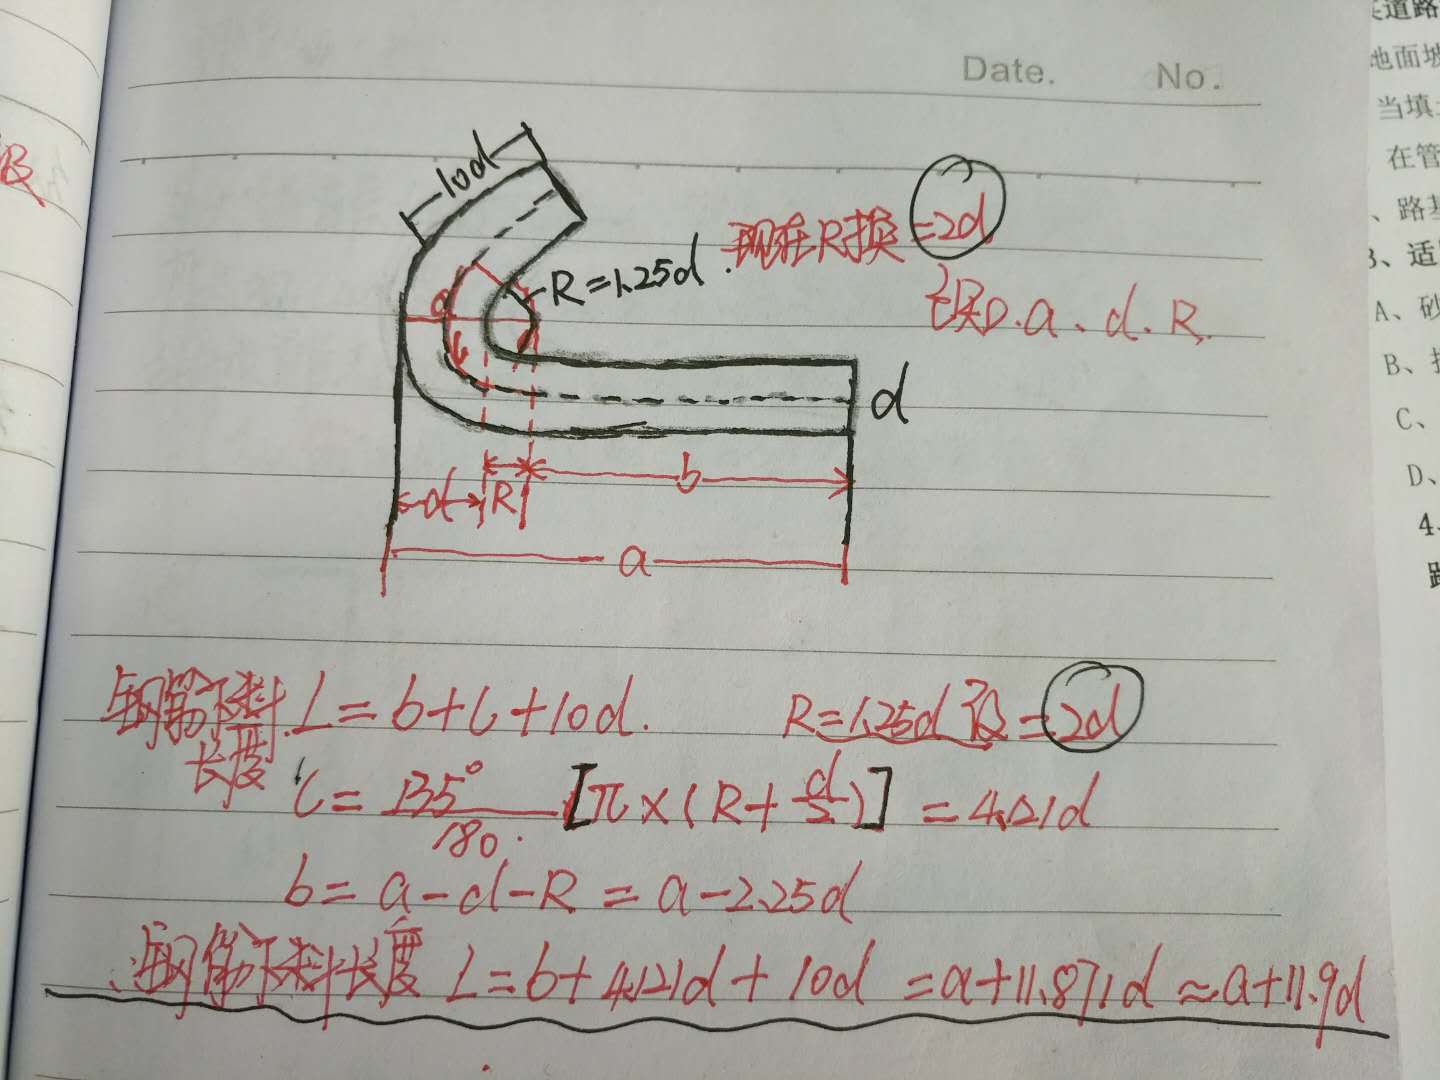 Date. No.
10d
现在R换=2d
R=1.25d.
已知.a、d.R.
d
b
d
R
a
钢筋下料长度 L=b+c+10d. R=1.25d 设=2d
C=135°/180.[π×(R+d/2)]=4.121d
b=a-d-R=a-2.25d
∴钢筋下料长度 L=b+4.121d+10d=a+11.871d≈a+11.9d
道路
地面坡
当填
在管
、路基
3、适
A、砂
B、
C、
D、
4.